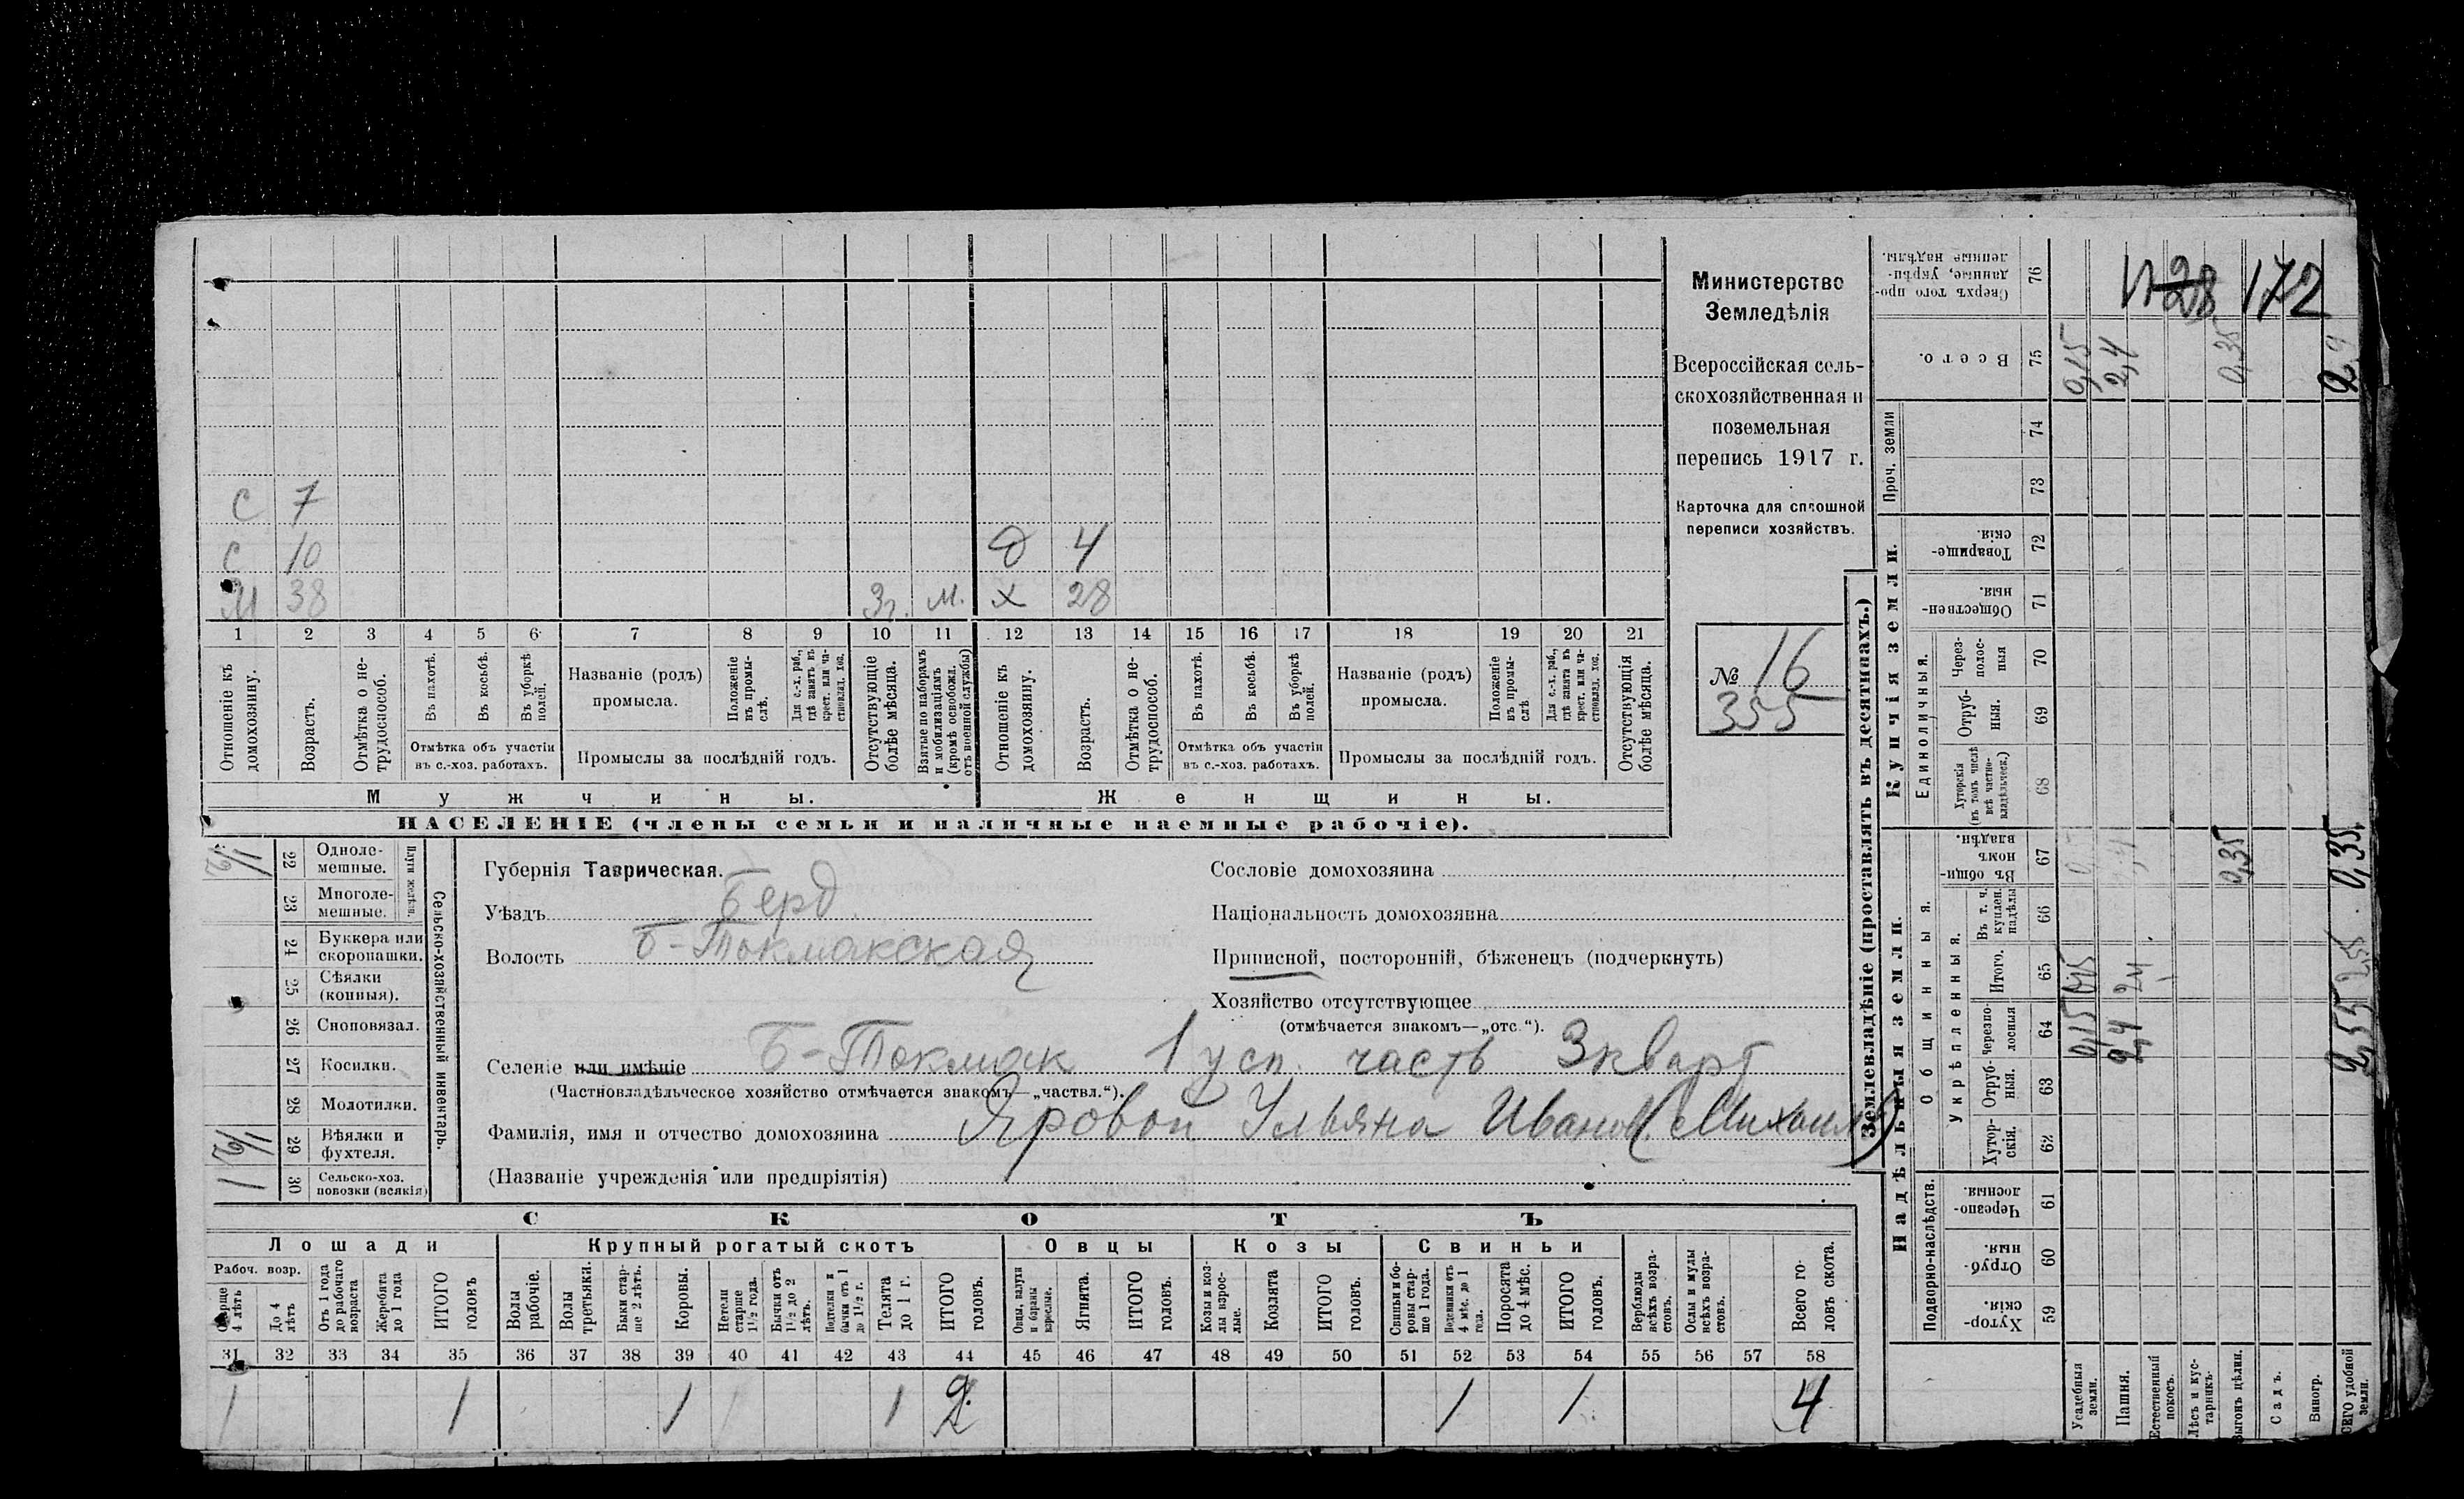 Министерство
Земледѣлія
Всероссійская сель-
скохозяйственная и
поземельная
перепись 1917 г.
Карточка для сплошной
переписи хозяйствъ.
№ 16
355
С 7
С 10 Д 4
М 38 3г. м. х 28
1 2 3 4 5 6 7 8 9 10 11 12 13 14 15 16 17 18 19 20 21
Отношеніе къ домохозяину.
Возрастъ.
Отмѣтка о не-трудоспособ.
Въ пахотѣ.
Въ косьбѣ.
Въ уборкѣ полей.
Отмѣтка объ участіи
въ с.-хоз. работахъ.
Названіе (родъ)
промысла.
Положеніе въ промы-слѣ.
Для с.-х. раб., гдѣ занятъ въ крест. или ча-стновлад. хоз.
Промыслы за послѣдній годъ.
Отсутствующіе болѣе мѣсяца.
Взятые по наборамъ и мобилизаціямъ (кромѣ освобожд. отъ военной службы)
Отношеніе къ домохозяину.
Возрастъ.
Отмѣтка о не-трудоспособ.
Въ пахотѣ.
Въ косьбѣ.
Въ уборкѣ полей.
Отмѣтка объ участіи
въ с.-хоз. работахъ.
Названіе (родъ)
промысла.
Положеніе въ промы-слѣ
Для с.-х. раб., гдѣ занята въ крест. или ча-стновлад. хоз.
Промыслы за послѣдній годъ.
Отсутствующія болѣе мѣсяца.
Мужчины. Женщины.
НАСЕЛЕНІЕ (члены семьи и наличные наемные рабочіе).
22 Одноле-мешные.
23 Многоле-мешные.
Плуги желѣзн.
24 Буккера или скоропашки.
25 Сѣялки (конныя).
26 Сноповязал.
27 Косилки.
28 Молотилки.
29 Вѣялки и фухтеля.
30 Сельско-хоз. повозки (всякія)
1
Сельско-хозяйственный инвентарь.
Губернія Таврическая.
Уѣздъ Берд
Волость Б-Токмакская
Сословіе домохозяина
Національность домохозяина
Приписной, посторонній, бѣженецъ (подчеркнуть)
Хозяйство отсутствующее
(отмѣчается знакомъ—„отс“).
Селеніе или имѣніе Б-Токмак 1 усп. часть 3 кварт
(Частновладѣльческое хозяйство отмѣчается знакомъ—„частвл.“).
Фамилія, имя и отчество домохозяина Яровой Ульяна Иванов. (Михаил)
(Названіе учрежденія или предпріятія)
СКОТЪ
Лошади Крупный рогатый скотъ Овцы Козы Свиньи
Рабоч. возр.
Старше 4 лѣтъ
До 4 лѣтъ
Отъ 1 года до рабочаго возраста
Жеребята до 1 года
ИТОГО головъ
Волы рабочіе.
Волы третьяки.
Быки стар-ше 2 лѣтъ.
Коровы.
Нетели старше 1½ года.
Бычки отъ 1½ до 2 лѣтъ.
Подтелки и бычки отъ 1 до 1½ г.
Телята до 1 г.
ИТОГО головъ.
Овцы, валухи и бараны взрослые.
Ягнята.
ИТОГО головъ.
Козы и коз-лы взрос-лые.
Козлята
ИТОГО головъ.
Свиньи и бо-ровы стар-ше 1 года.
Подсвинки отъ 4 мѣс. до 1 года.
Поросята до 4 мѣс.
ИТОГО головъ.
Верблюды всѣхъ возра-стовъ.
Ослы и мулы всѣхъ возра-стовъ.
Всего го-ловъ скота.
31 32 33 34 35 36 37 38 39 40 41 42 43 44 45 46 47 48 49 50 51 52 53 54 55 56 57 58
1 1 1 1 2 1 1 4
Землевладѣніе (проставлять въ десятинахъ.)
Купчія земли.
Надѣльныя земли.
Проч. земли
Единоличныя.
Общинныя.
Укрѣпленныя.
Подворно-наслѣдств.
76 Сверхъ того про-данные, укрѣп-ленные надѣлы.
75 Всего. 0,15 2,4 0,35 2,9
74
73
72 Товарище-скія.
71 Обществен-ныя.
70 Через-полос-ныя
69 Отруб-ныя.
68 Хуторскія (въ томъ числѣ всѣ частно-владѣльческ.)
67 Въ общи-номъ владѣн. 0,35 0,35
66 Въ т. ч. куплен. надѣлы
65 Итого. 0,15 2,4 2,55
64 Черезпо-лосныя 0,15 2,4 2,55
63 Отруб-ныя.
62 Хутор-скія.
61 Черезпо-лосныя.
60 Отруб-ныя.
59 Хутор-скія.
Усадебныя земли.
Пашня.
Естественный покосъ.
Лѣсъ и кус-тарникъ.
Выгонъ цѣлин.
Садъ.
Виногр.
ВСЕГО удобной земли.
28 172